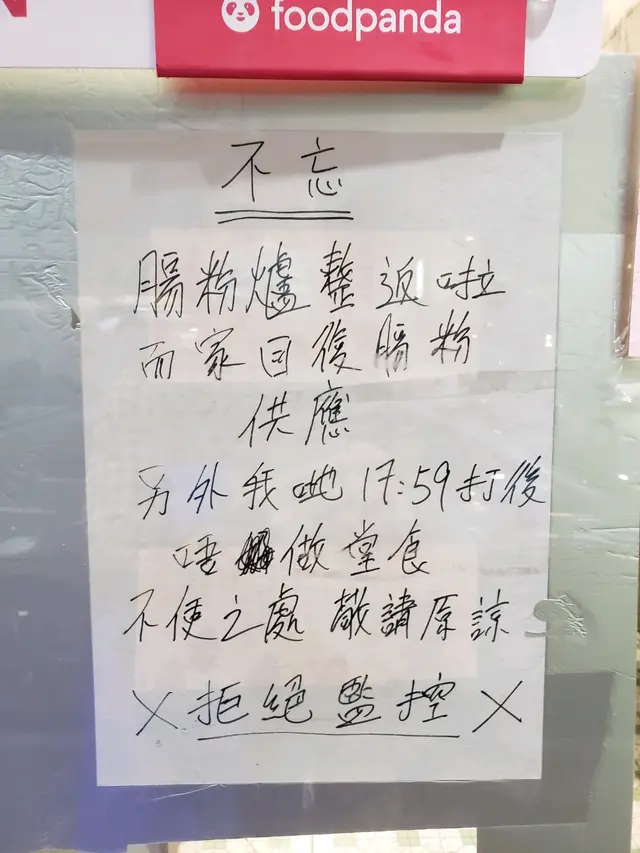 foodpanda
不忘
腸粉爐整返啦
而家回後腸粉
供應
另外我哋17:59打後
唔做堂食
不便之處敬請原諒
X拒絕監控X